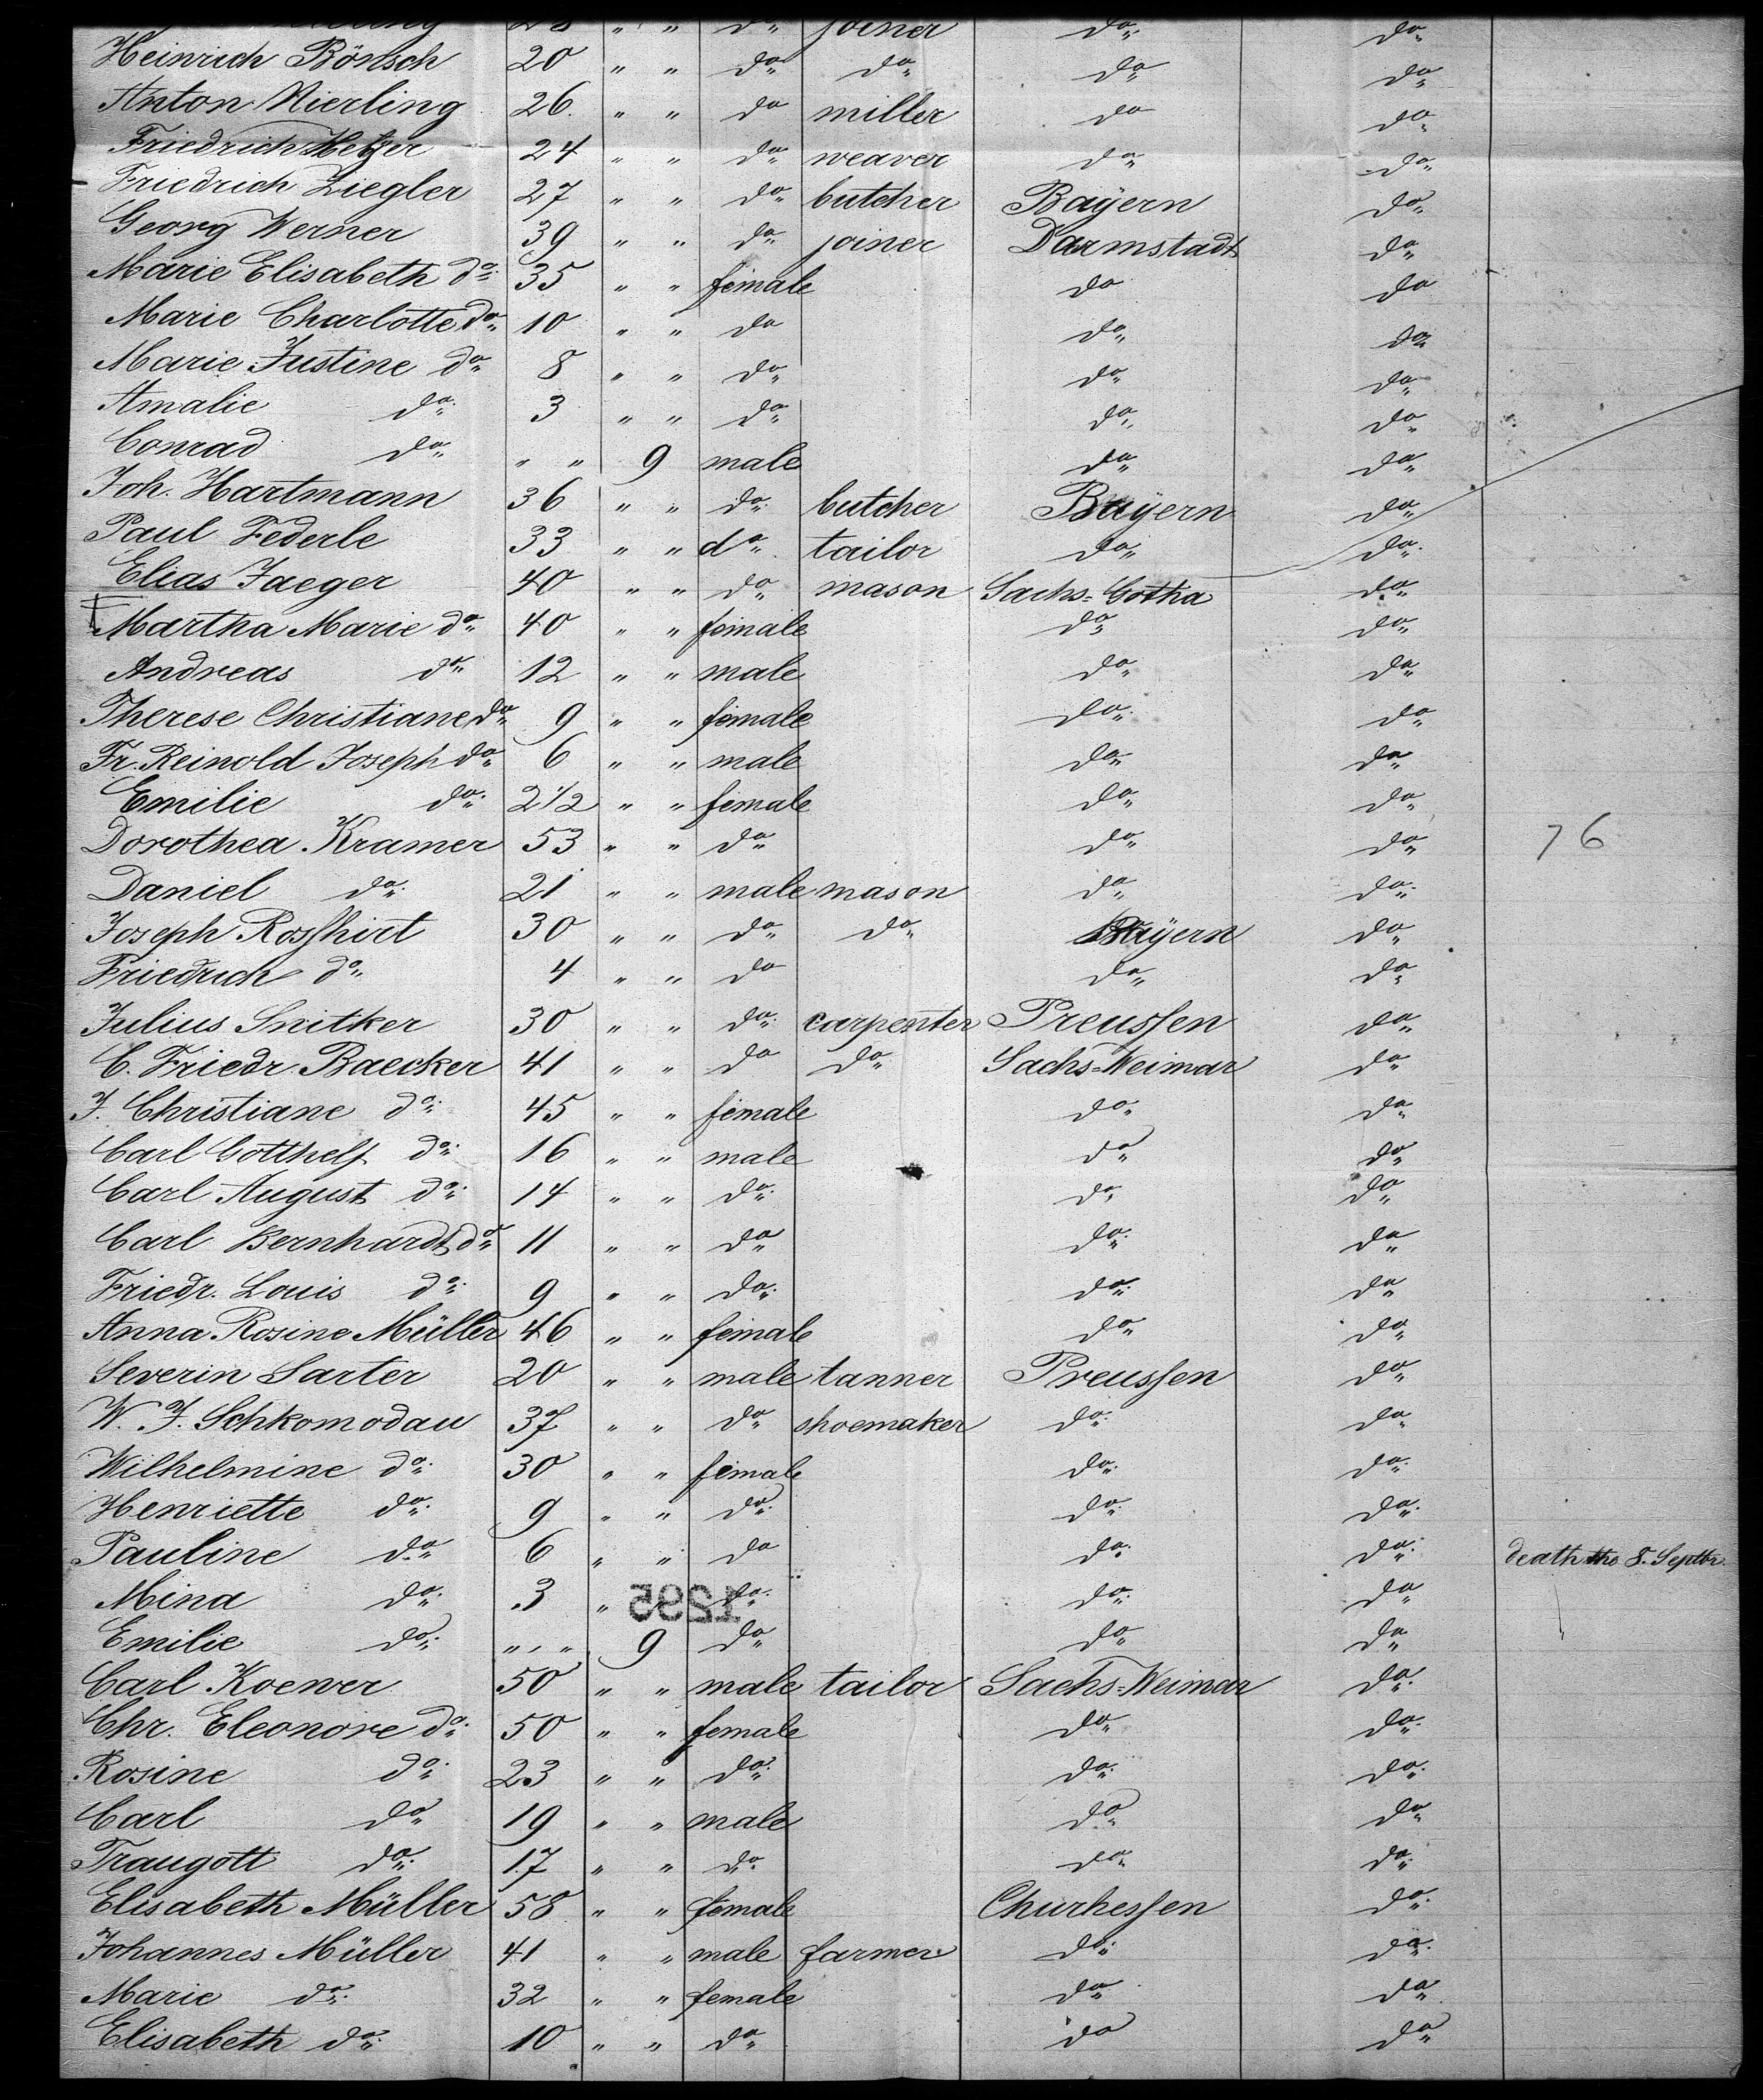 28 " " do joiner do do
Heinrich Bönsch 20 " " do do do do
Anton Nierling 26. " " do miller do do
Friedrich Hetzer 24 " " do weaver do do
Friedrich Ziegler 27 " " do butcher Bayern do
Georg Werner 39 " " do joiner Darmstadt do
Marie Elisabeth do 35 " " female do do
Marie Charlotte do 10 " " do do do
Marie Justine do 8 " " do do do
Amalie do 3 " " do do do
Conrad do " " 9 male do do
Joh. Hartmann 36 " " do butcher Bayern do
Paul Federle 33 " " do tailor do do
Elias Jaeger 40 " " do mason Sachs=Gotha do
Martha Marie do 40 " " female do do
Andreas do 12 " " male do do
Therese Christiane do 9 " " female do do
Fr. Reinold Joseph do 6 " " male do do
Emilie do 2 1/2 " " female do do
Dorothea Kramer 53 " " do do do 76
Daniel do 21 " " male mason do do
Joseph Rosshirt 30 " " do do Bayern do
Friedrich do 4 " " do do do
Julius Snitker 30 " " do carpenter Preussen do
C. Friedr. Baecker 41 " " do do Sachs=Weimar do
J. Christiane do 45 " " female do do
Carl Gotthelf do 16 " " male do do
Carl August do 14 " " do do do
Carl Bernhardt do 11 " " do do do
Friedr. Louis do 9 " " do do do
Anna Rosine Müller 46 " " female do do
Severin Sarter 20 " " male tanner Preussen do
W. J. Schkomodau 37 " " do shoemaker do do
Wilhelmine do 30 " " female do do
Henriette do 9 " " do do do
Pauline do 6 " " do do do death the 8. Septbr.
Mina do 3 " " do do do
1295
Emilie do " " 9 do do do
Carl Koewer 50 " " male tailor Sachs=Weimar do
Chr. Eleonore do 50 " " female do do
Rosine do 23 " " do do do
Carl do 19 " " male do do
Traugott do 17 " " do do do
Elisabeth Müller 58 " " female Churhessen do
Johannes Müller 41 " " male farmer do do
Marie do 32 " " female do do
Elisabeth do 10 " " do do do